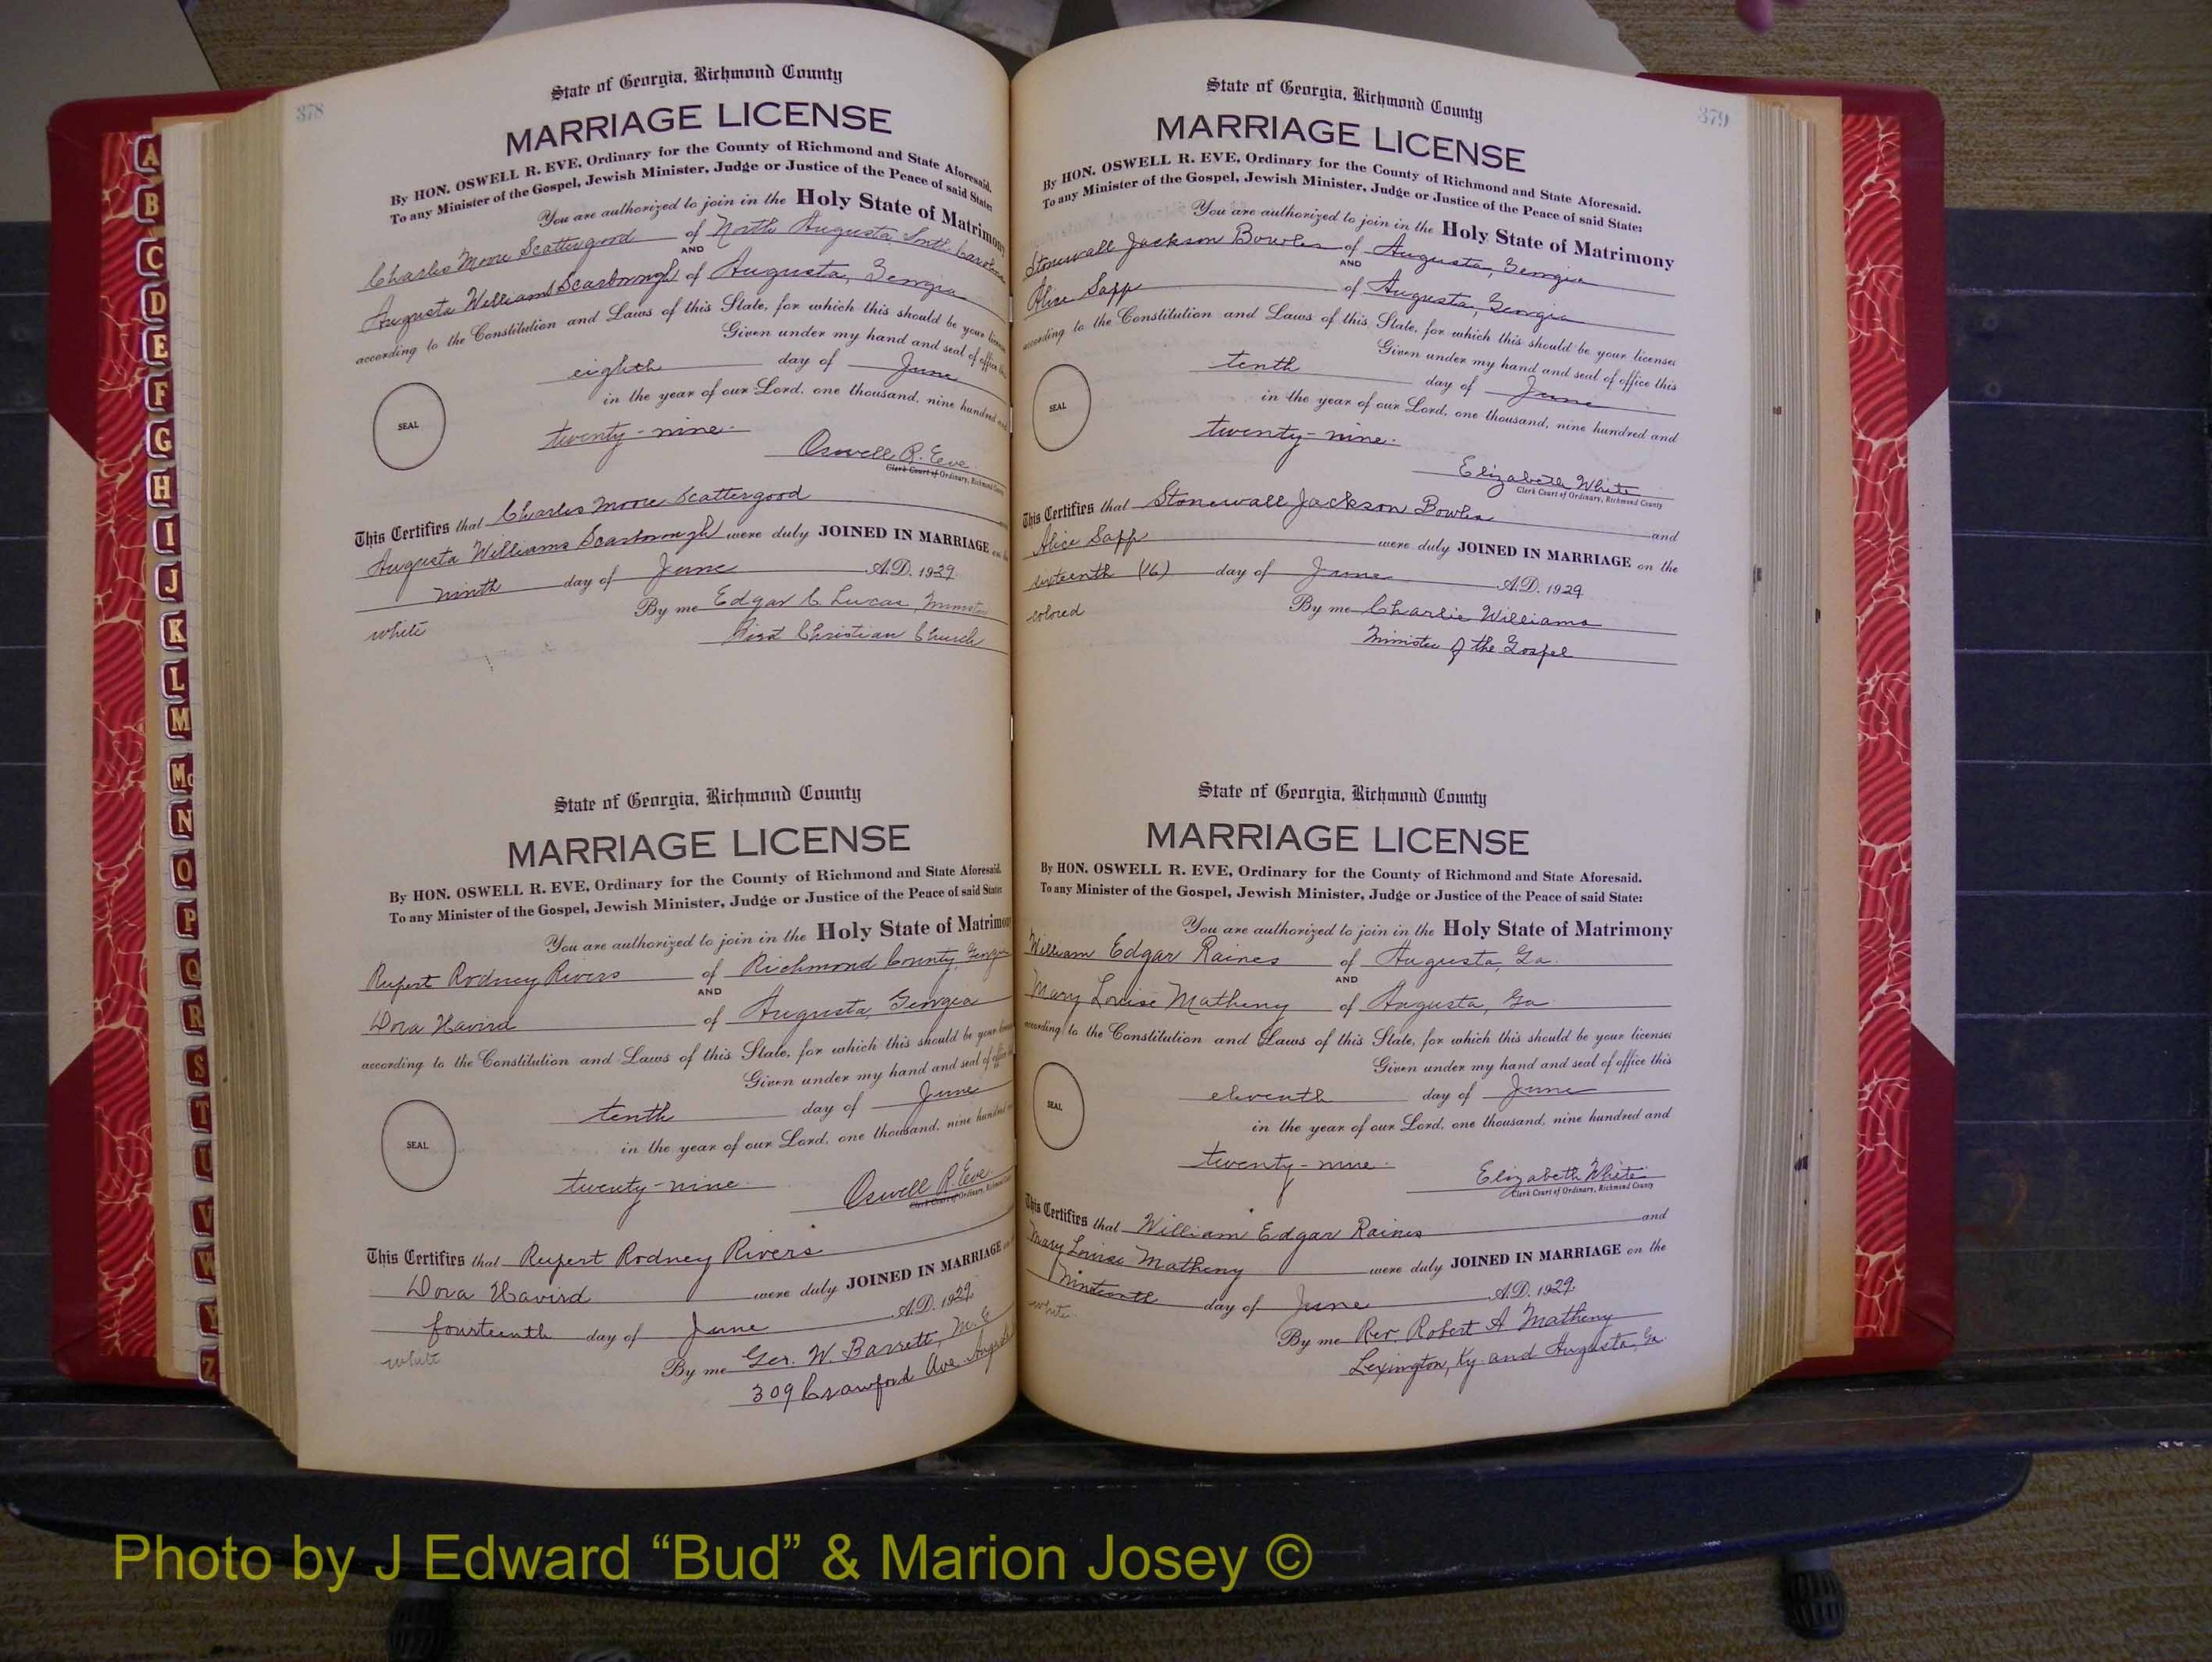 378
State of Georgia, Richmond County
MARRIAGE LICENSE
By HON. OSWELL R. EVE, Ordinary for the County of Richmond and State Aforesaid.
To any Minister of the Gospel, Jewish Minister, Judge or Justice of the Peace of said State:
You are authorized to join in the Holy State of Matrimony
Charles Moore Scattergood of North Augusta, South Carolina
AND
Augusta Williams Scarborough of Augusta, Georgia
according to the Constitution and Laws of this State, for which this should be your license
Given under my hand and seal of office this
eighth day of June
in the year of our Lord, one thousand, nine hundred and
SEAL
twenty-nine.
Oswell R. Eve
Clerk Court of Ordinary, Richmond County
This Certifies that Charles Moore Scattergood
Augusta Williams Scarborough were duly JOINED IN MARRIAGE on the
ninth day of June A.D. 1929.
By me Edgar C Lucas, Minister
white
First Christian Church
State of Georgia, Richmond County
MARRIAGE LICENSE
By HON. OSWELL R. EVE, Ordinary for the County of Richmond and State Aforesaid.
To any Minister of the Gospel, Jewish Minister, Judge or Justice of the Peace of said State:
You are authorized to join in the Holy State of Matrimony
Rupert Rodney Rivers of Richmond County, Georgia
AND
Dora Havird of Augusta, Georgia
according to the Constitution and Laws of this State, for which this should be your license
Given under my hand and seal of office this
tenth day of June
in the year of our Lord, one thousand, nine hundred and
SEAL
twenty-nine.
Oswell R. Eve
Clerk Court of Ordinary, Richmond County
This Certifies that Rupert Rodney Rivers
Dora Havird were duly JOINED IN MARRIAGE on
fourteenth day of June A.D. 1929.
white
By me Geo. W. Barrett, M.G
309 Crawford Ave. Augusta
379
State of Georgia, Richmond County
MARRIAGE LICENSE
By HON. OSWELL R. EVE, Ordinary for the County of Richmond and State Aforesaid.
To any Minister of the Gospel, Jewish Minister, Judge or Justice of the Peace of said State:
You are authorized to join in the Holy State of Matrimony
Stonewall Jackson Bowles of Augusta, Georgia
AND
Alice Sapp of Augusta, Georgia
according to the Constitution and Laws of this State, for which this should be your license
Given under my hand and seal of office this
tenth day of June
in the year of our Lord, one thousand, nine hundred and
SEAL
twenty-nine.
Elizabeth White
Clerk Court of Ordinary, Richmond County
This Certifies that Stonewall Jackson Bowles and
Alice Sapp were duly JOINED IN MARRIAGE on the
sixteenth (16) day of June A.D. 1929.
colored
By me Charlie Williams
Minister of the Gospel
State of Georgia, Richmond County
MARRIAGE LICENSE
By HON. OSWELL R. EVE, Ordinary for the County of Richmond and State Aforesaid.
To any Minister of the Gospel, Jewish Minister, Judge or Justice of the Peace of said State:
You are authorized to join in the Holy State of Matrimony
William Edgar Raines of Augusta, Ga.
AND
Mary Louise Matheny of Augusta, Ga
according to the Constitution and Laws of this State, for which this should be your license
Given under my hand and seal of office this
eleventh day of June
in the year of our Lord, one thousand, nine hundred and
SEAL
twenty-nine.
Elizabeth White
Clerk Court of Ordinary, Richmond County
This Certifies that William Edgar Raines and
Mary Louise Matheny were duly JOINED IN MARRIAGE on the
Ninteenth day of June A.D. 1929.
white
By me Rev. Robert A Matheny
Lexington, Ky. and Augusta, Ga.
A
B
C
D
E
F
G
H
I
J
K
L
M
Mc
N
O
P
Q
R
S
T
U
V
W
Y
Z
Photo by J Edward “Bud” & Marion Josey ©